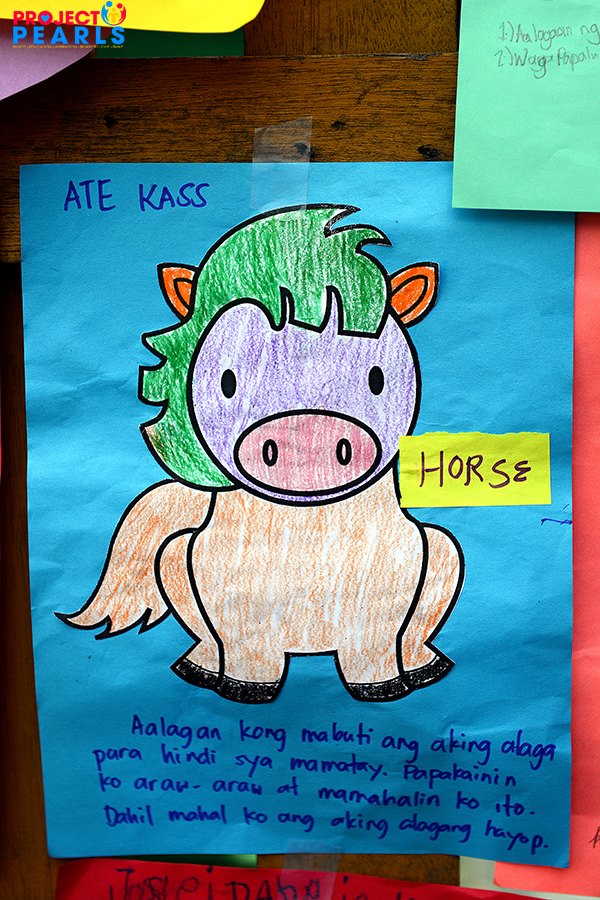 PROJECT
PEARLS
1.) Aalagaan ng
2.) Waga papalu
ATE KASS
HORSE
Aalagan kong mabuti ang aking alaga
para hindi sya mamatay. Papakainin
ko araw-araw at mamahalin ko ito.
Dahil mahal ko ang aking alagang hayop.